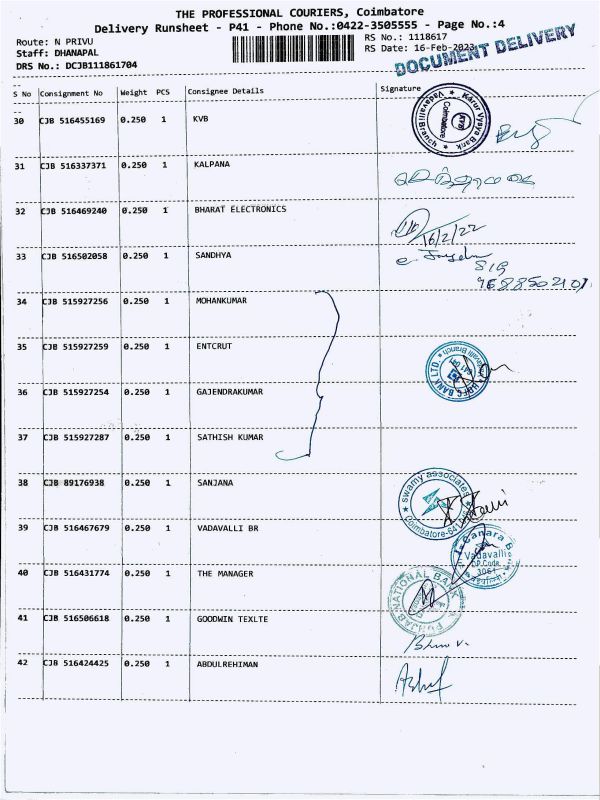 THE PROFESSIONAL COURIERS, Coimbatore
Delivery Runsheet - P41 - Phone No.:0422-3505555 - Page No.:4
Route: N PRIVU
RS No.: 1118617
Staff: DHANAPAL
RS Date: 16-Feb-2023
DRS No.: DCJB111861704
DOCUMENT DELIVERY
S No Consignment No Weight PCS Consignee Details Signature
30 CJB 516455169 0.250 1 KVB
Karur Vysya Bank
KVB
Coimbatore
Vadavalli Branch
31 CJB 516337371 0.250 1 KALPANA
32 CJB 516469240 0.250 1 BHARAT ELECTRONICS
16/2/22
33 CJB 516502058 0.250 1 SANDHYA
34 CJB 515927256 0.250 1 MOHANKUMAR
35 CJB 515927259 0.250 1 ENTCRUT
HDFC BANK LTD.
36 CJB 515927254 0.250 1 GAJENDRAKUMAR
37 CJB 515927287 0.250 1 SATHISH KUMAR
38 CJB 89176938 0.250 1 SANJANA
swamy associates
Coimbatore-641
39 CJB 516467679 0.250 1 VADAVALLI BR
Canara B
Vadavalli
DP.Code.
3061
40 CJB 516431774 0.250 1 THE MANAGER
PUNJAB NATIONAL BANK
41 CJB 516506618 0.250 1 GOODWIN TEXLTE
42 CJB 516424425 0.250 1 ABDULREHIMAN